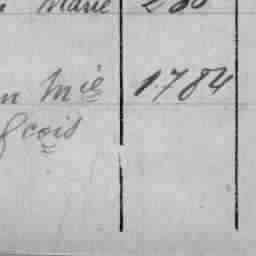 Marie
n Mie 1784
fcois